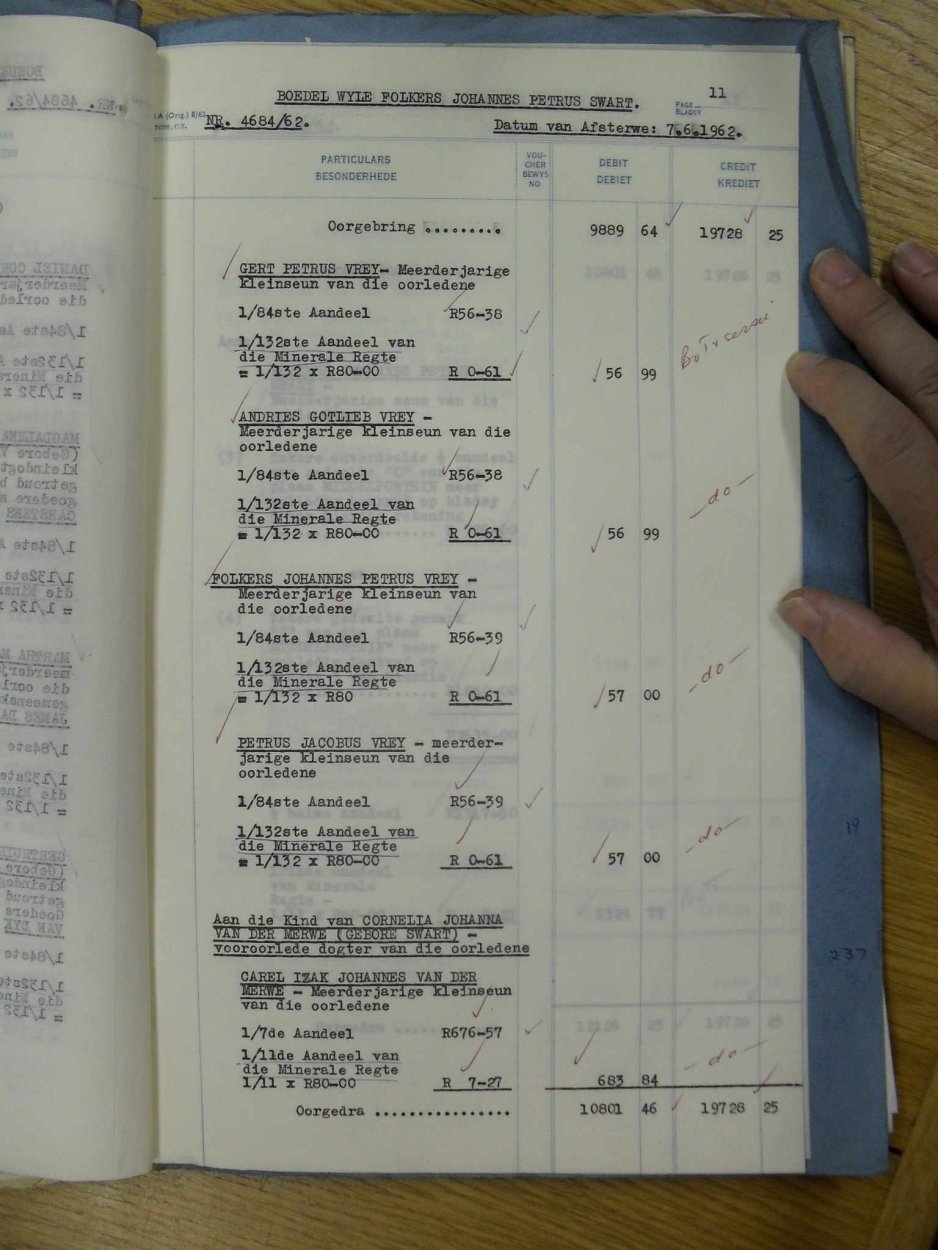 BOEDEL WYLE FOLKERS JOHANNES PETRUS SWART.
11
PAGE
BLADSY
A (Orig.) 8/63
NR. 4684/62.
Datum van Afsterwe: 7.6.1962.
PARTICULARS
BESONDERHEDE
VOU-
CHER
BEWYS
NO
DEBIT
DEBIET
CREDIT
KREDIET
Oorgebring ......... 9889 64 19728 25
GERT PETRUS VREY- Meerderjarige
kleinseun van die oorledene
1/84ste Aandeel R56-38
1/132ste Aandeel van
die Minerale Regte
= 1/132 x R80-00 R 0-61 56 99
ANDRIES GOTLIEB VREY -
Meerderjarige kleinseun van die
oorledene
1/84ste Aandeel R56-38
-do-
1/132ste Aandeel van
die Minerale Regte
= 1/132 x R80-00 R 0-61 56 99
FOLKERS JOHANNES PETRUS VREY -
Meerderjarige kleinseun van
die oorledene
1/84ste Aandeel R56-39
1/132ste Aandeel van
-do-
die Minerale Regte
= 1/132 x R80 R 0-61 57 00
PETRUS JACOBUS VREY - meerder-
jarige kleinseun van die
oorledene
1/84ste Aandeel R56-39
1/132ste Aandeel van
-do-
die Minerale Regte
= 1/132 x R80-00 R 0-61 57 00
Aan die Kind van CORNELIA JOHANNA
VAN DER MERWE (GEBORE SWART) -
vooroorlede dogter van die oorledene
CAREL IZAK JOHANNES VAN DER
MERWE - Meerderjarige kleinseun
van die oorledene
1/7de Aandeel R676-57
1/11de Aandeel van
-do-
die Minerale Regte
1/11 x R80-00 R 7-27 683 84
Oorgedra ................ 10801 46 19728 25
19
237